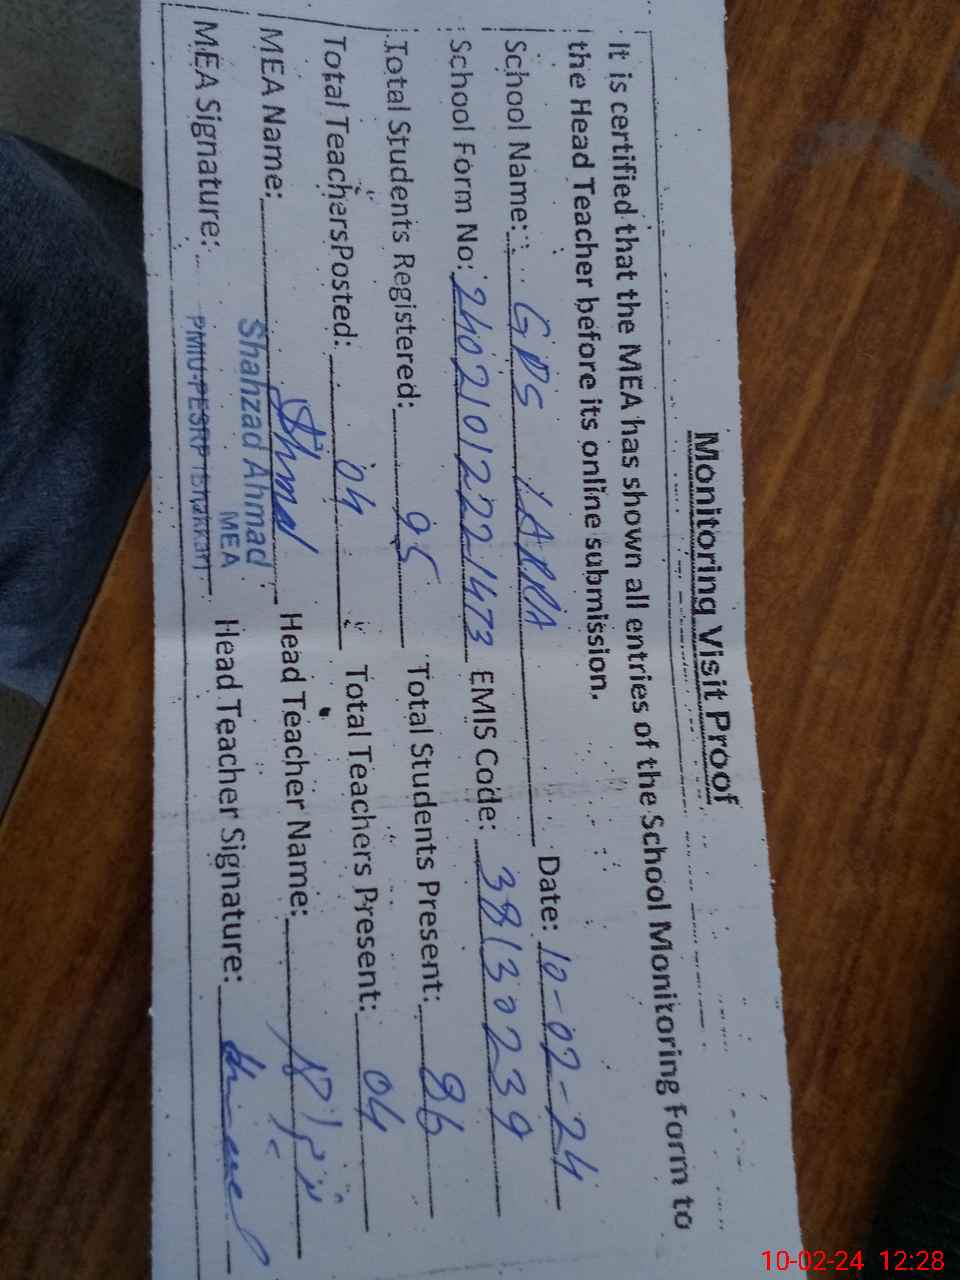 Monitoring Visit Proof
It is certified that the MEA has shown all entries of the School Monitoring Form to
the Head Teacher before its online submission.
School Name: GPS LARRA Date: 10-02-24
School Form No: 24021012221473 EMIS Code: 38130239
Total Students Registered: 95 Total Students Present: 86
Total Teachers Posted: 04 Total Teachers Present: 04
MEA Name: Head Teacher Name:
Shahzad Ahmad
MEA
MEA Signature: PMIU-PESRP Bhakkar Head Teacher Signature:
10-02-24 12:28